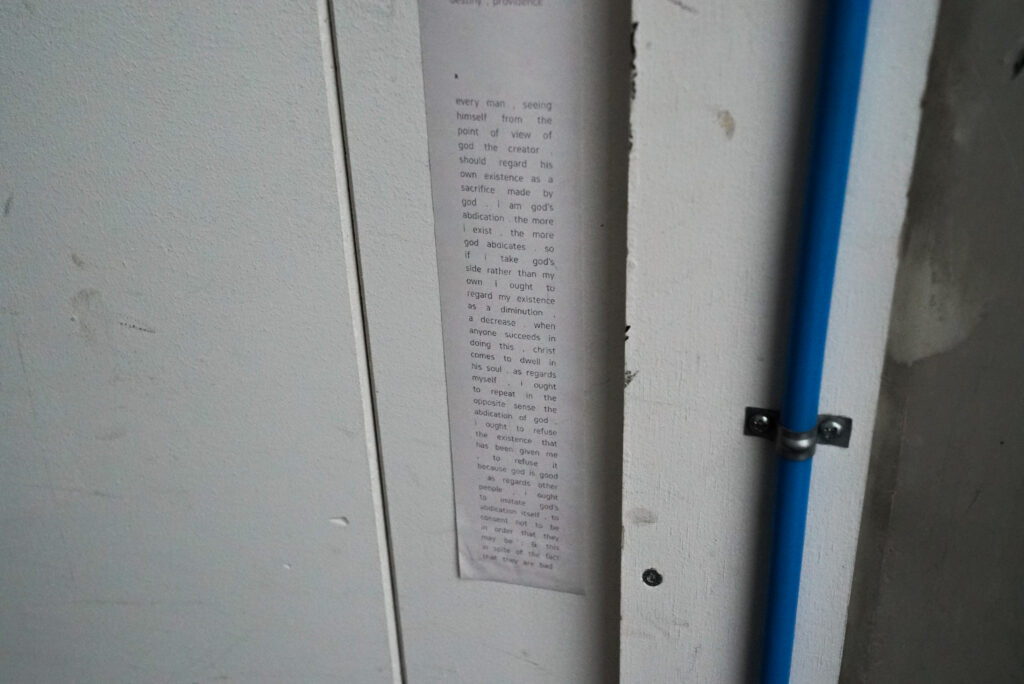 destiny . providence
.
every man , seeing
himself from the
point of view of
god the creator ,
should regard his
own existence as a
sacrifice made by
god . i am god's
abdication . the more
i exist , the more
god abdicates . so
if i take god's
side rather than my
own i ought to
regard my existence
as a diminution ,
a decrease . when
anyone succeeds in
doing this , christ
comes to dwell in
his soul . as regards
myself , i ought
to repeat in the
opposite sense the
abdication of god ,
i ought to refuse
the existence that
has been given me
, to refuse it
because god is good
. as regards other
people , i ought
to imitate god's
abdication itself , to
consent not to be
in order that they
may be ; & this
in spite of the fact
that they are bad